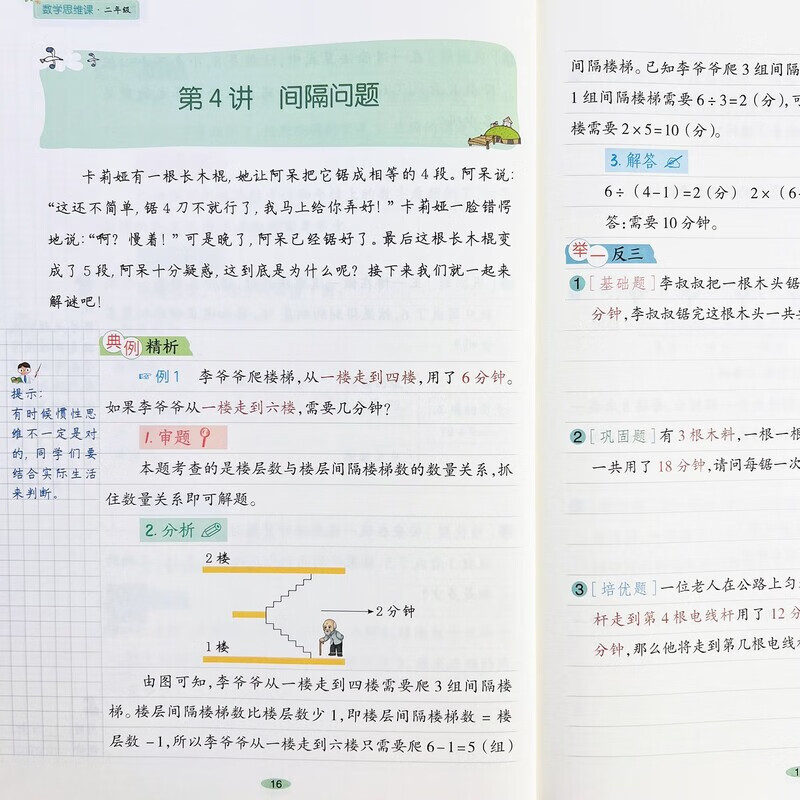 数学思维课·二年级
第4讲 间隔问题
卡莉娅有一根长木棍,她让阿呆把它锯成相等的4段。阿呆说:
“这还不简单,锯4刀不就行了,我马上给你弄好!”卡莉娅一脸错愕
地说:“啊?慢着!”可是晚了,阿呆已经锯好了。最后这根长木棍变
成了5段,阿呆十分疑惑,这到底是为什么呢?接下来我们就一起来
解谜吧!
典例精析
例1 李爷爷爬楼梯,从一楼走到四楼,用了6分钟。
如果李爷爷从一楼走到六楼,需要几分钟?
提示:
有时候惯性思
维不一定是对
的,同学们要
结合实际生活
来判断。
1.审题
本题考查的是楼层数与楼层间隔楼梯数的数量关系,抓
住数量关系即可解题。
2.分析
2楼
2分钟
1楼
由图可知,李爷爷从一楼走到四楼需要爬3组间隔楼
梯。楼层间隔楼梯数比楼层数少1,即楼层间隔楼梯数=楼
层数-1,所以李爷爷从一楼走到六楼只需要爬6-1=5(组)
16
间隔楼梯。已知李爷爷爬3组间隔
1组间隔楼梯需要6÷3=2(分),可
楼需要2×5=10(分)。
3.解答
6÷(4-1)=2(分) 2×(6-
答:需要10分钟。
举一反三
1 [基础题]李叔叔把一根木头锯
分钟,李叔叔锯完这根木头一共
2 [巩固题]有3根木料,一根一根
一共用了18分钟,请问每锯一次
3 [培优题]一位老人在公路上匀
杆走到第4根电线杆用了12分
分钟,那么他将走到第几根电线